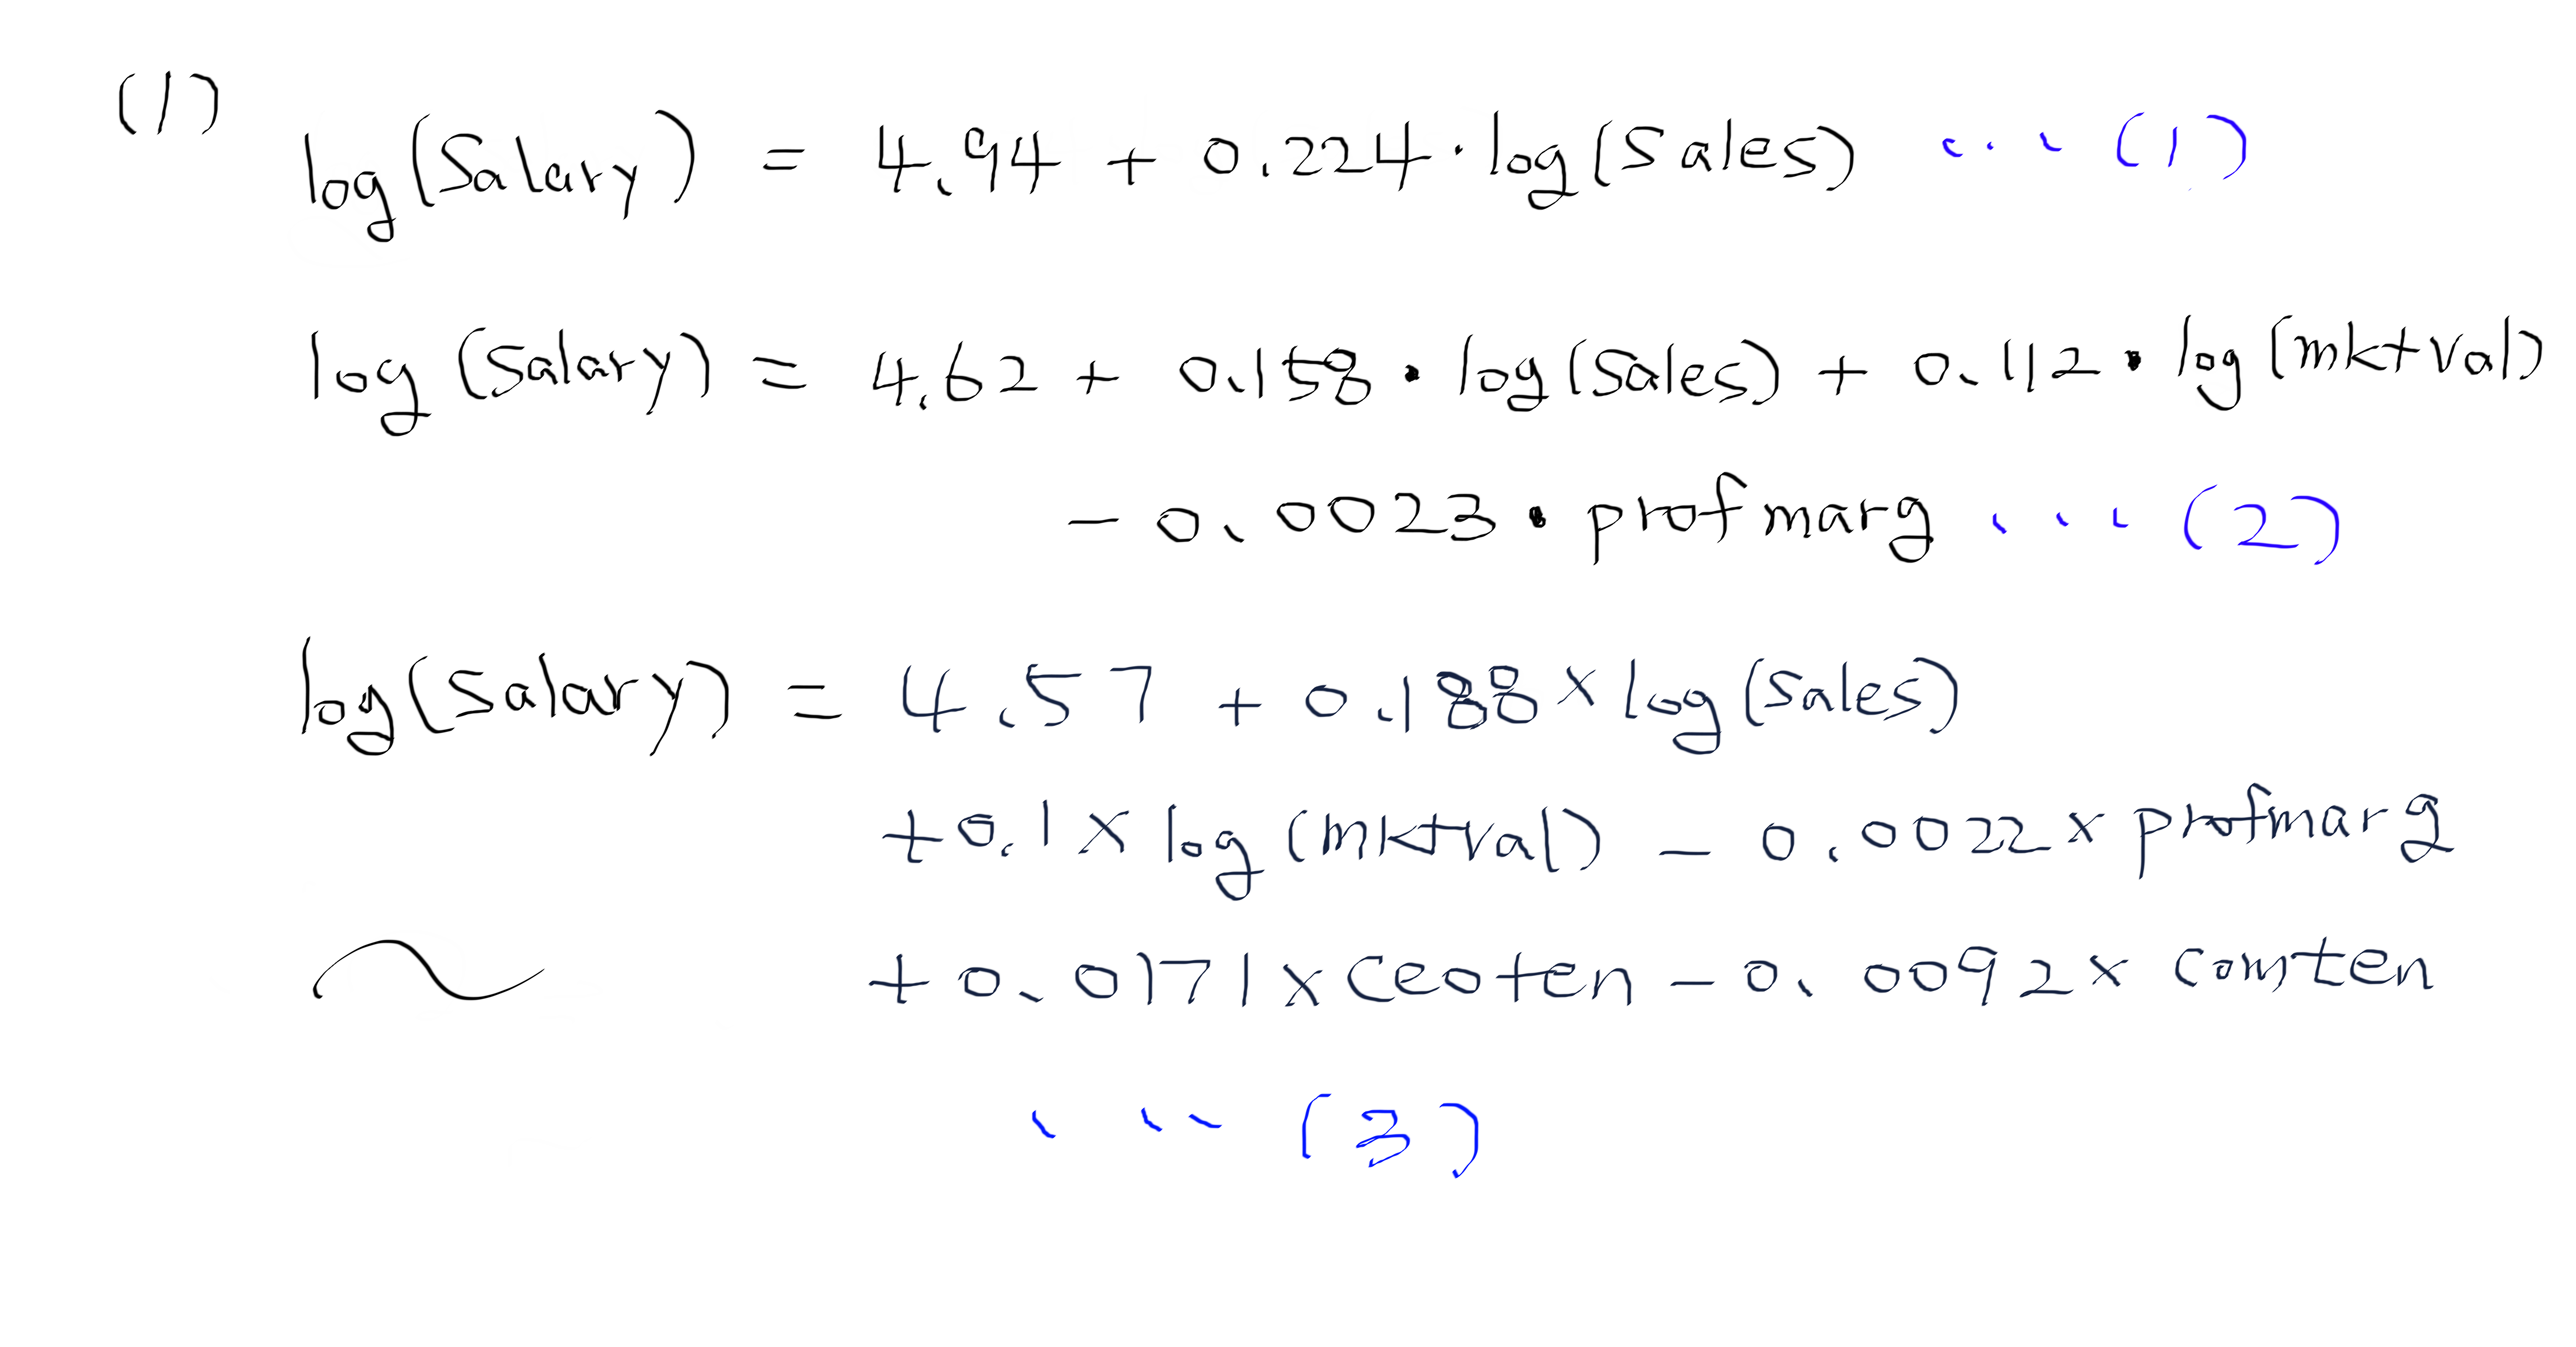 (1)
log(Salary) = 4.94 + 0.224 · log(Sales) ... (1)
log(Salary) = 4.62 + 0.158 · log(Sales) + 0.112 · log(mktval)
- 0.0023 · profmarg ... (2)
log(Salary) = 4.57 + 0.188 × log(Sales)
+ 0.1 × log(mktval) - 0.0022 × profmarg
+ 0.0171 × ceoten - 0.0092 × comten
... (3)